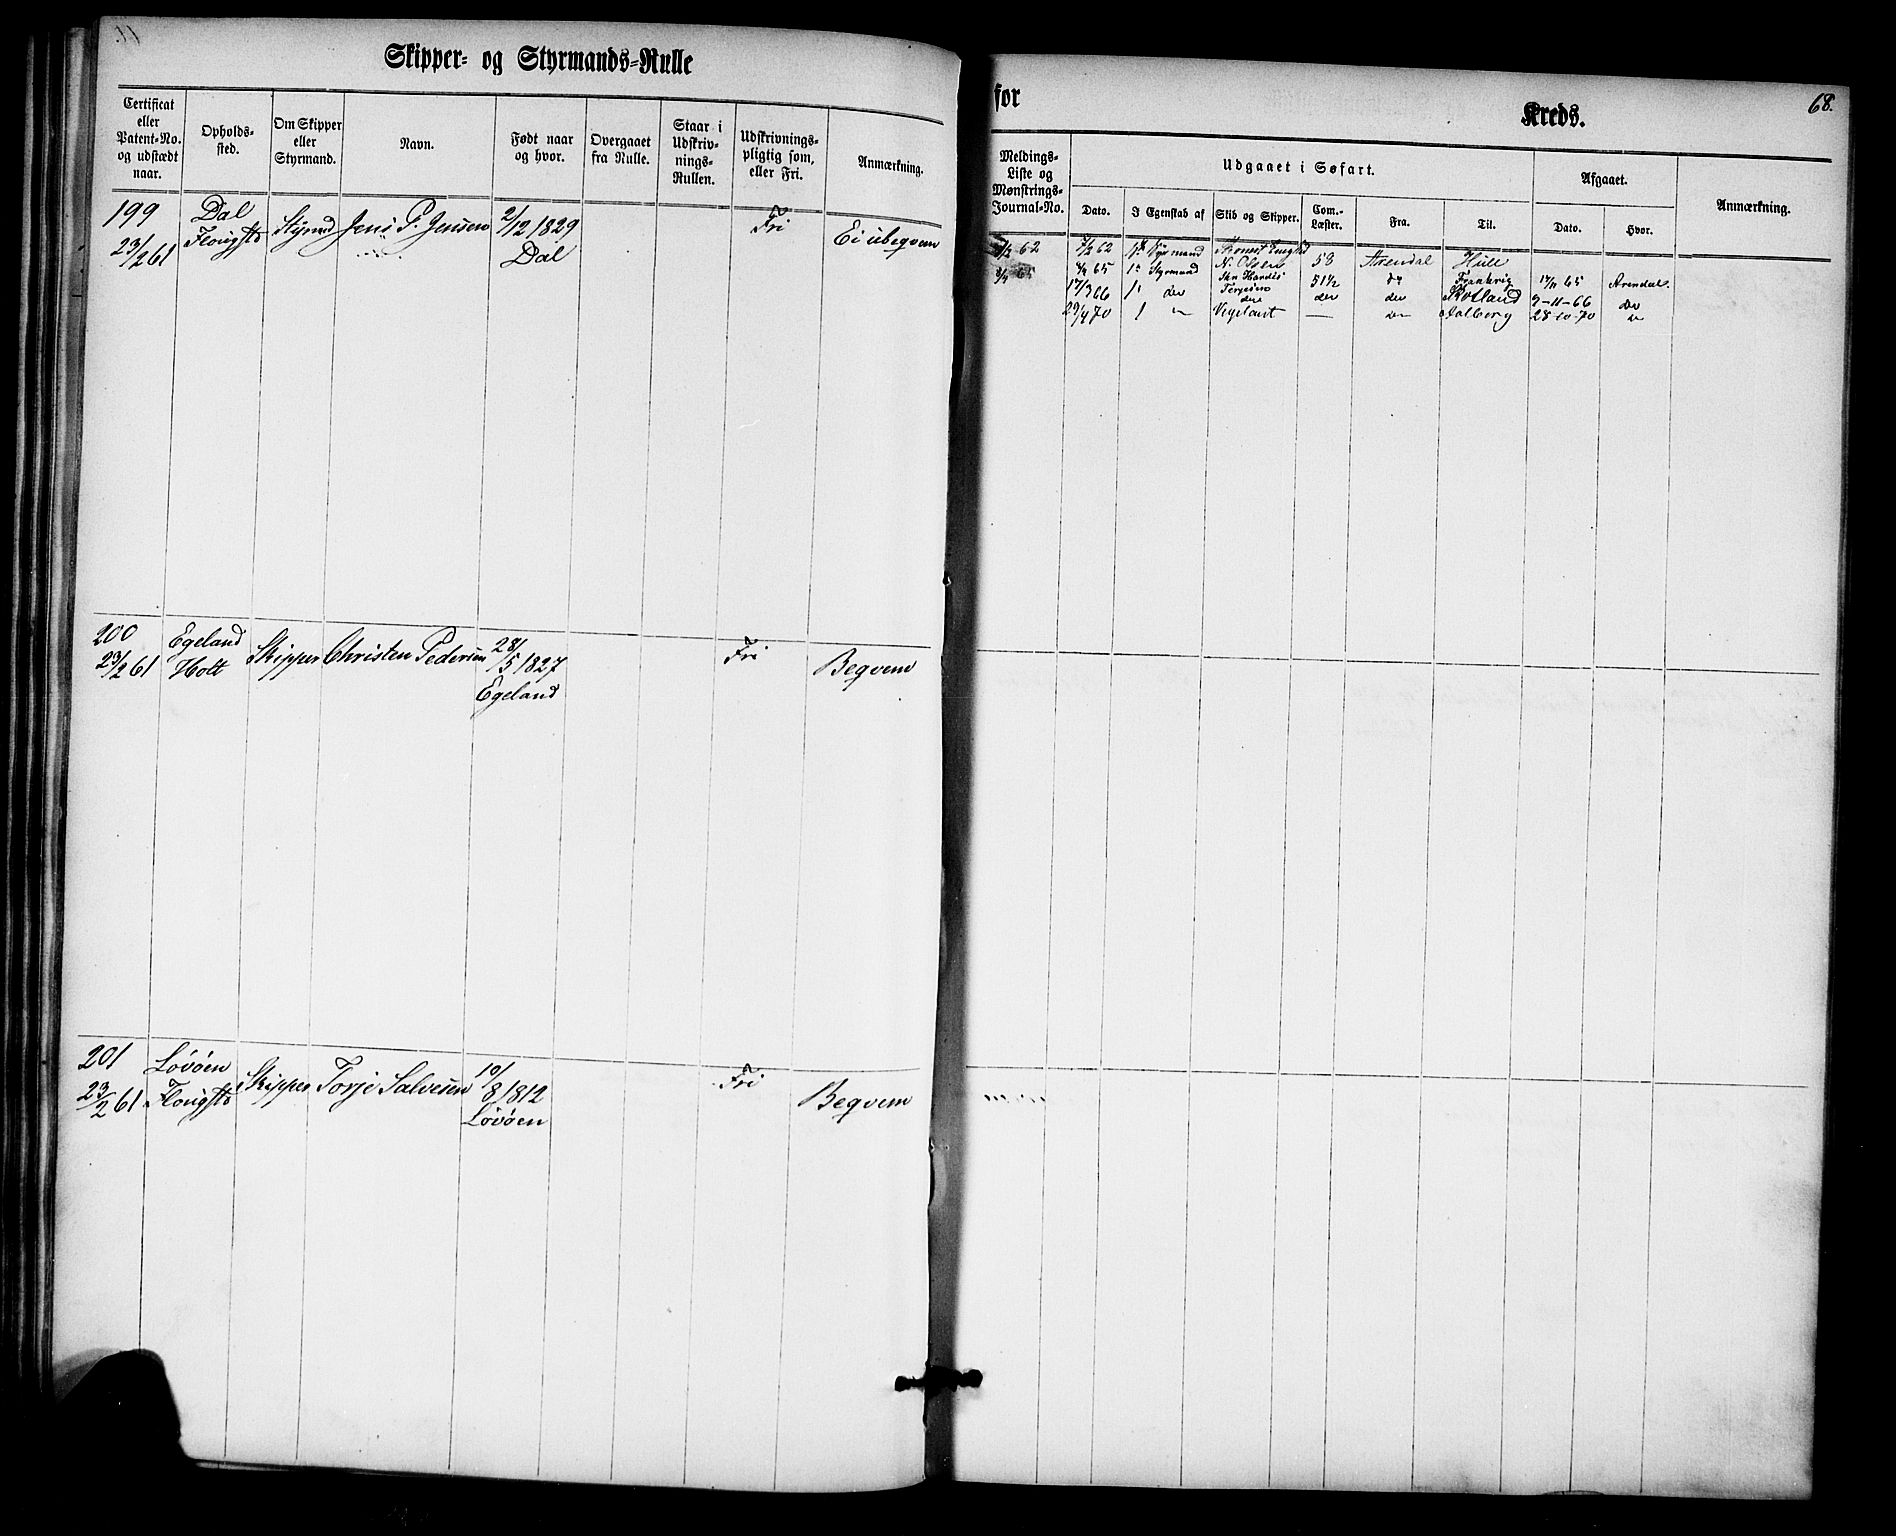 Skipper- og Styrmands-Rulle
for
Kreds.
68.
Certificat eller Patent-No. og udstædt naar.
Opholds-sted.
Om Skipper eller Styrmand.
Navn.
Født naar og hvor.
Overgaaet fra Rulle.
Staar i Udskriv-nings-Rullen.
Udskrivnings-pligtig som, eller Fri.
Anmærkning.
Meldings-Liste og Mønstrings-Journal-No.
Udgaaet i Søfart.
Dato.
I Egenskab af
Skib og Skipper.
Com.-Læster.
Fra.
Til.
Afgaaet.
Dato.
Hvor.
Anmærkning.
199 Dal Styrmd Jens P. Jensen 2/12 1829 Fri Ei ubeqvem
23/2 61 Dal
7/2 62 Styrmand 58 Arendal Hull
N. Olsen
8/4 65 1ste Styrmand 51½ do 17/11 65 Arendal
Terjesen
17/3 66 1 do do do Skotland 9-11-66 do
29/4 70 1 Aalborg 28-10-70
200 Egeland Skipper Christen Pedersen 28/5 1827 Fri Beqvem
23/2 61 Holt Egeland
201 Løvøen Skipper Torje Salvesen 10/8 1812 Fri Beqvem
23/2 61 Løvøen